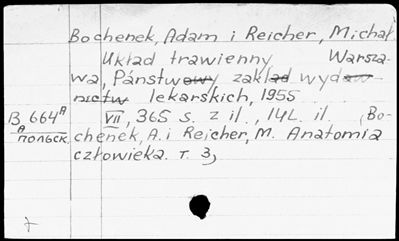 Bochenek, Adam i Reicher, Michał.
Układ trawienny Warsza-
wa, Państwowy zakład wydaw-
nictw lekarskich, 1955
B 664ᴬ VII, 365 s. z il., 14 L. il. (Bo-
А польск. chenek, A. i Reicher, M. Anatomia
człowieka. т. 3)